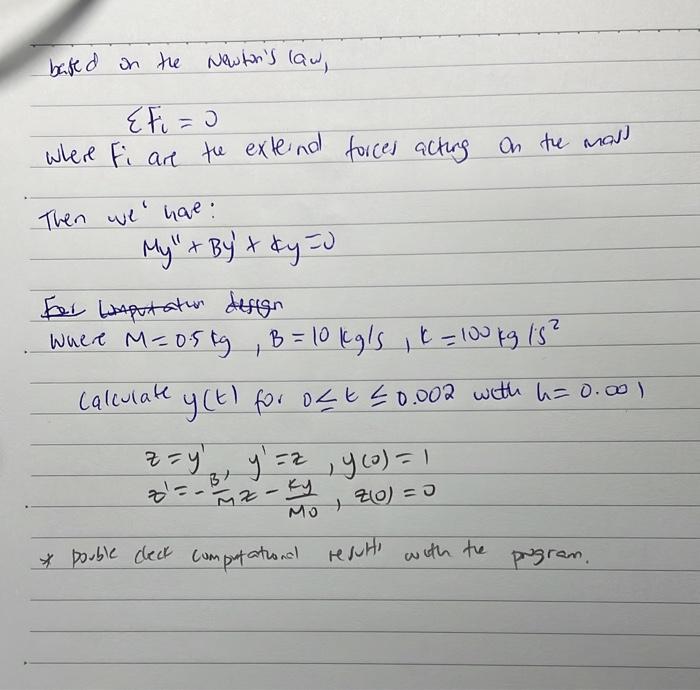 based on the Newton's law,
ΣFi = 0
where Fi are the external forces acting on the mass
Then we' have:
My'' + By' + ky = 0
For computation design
where M = 0.5 kg, B = 10 kg/s, k = 100 kg/s²
Calculate y(t) for 0 ≤ t ≤ 0.002 with h = 0.001
z = y', y' = z, y(0) = 1
z' = -B/M z - Ky/M0, z(0) = 0
* Double check computational results with the program.